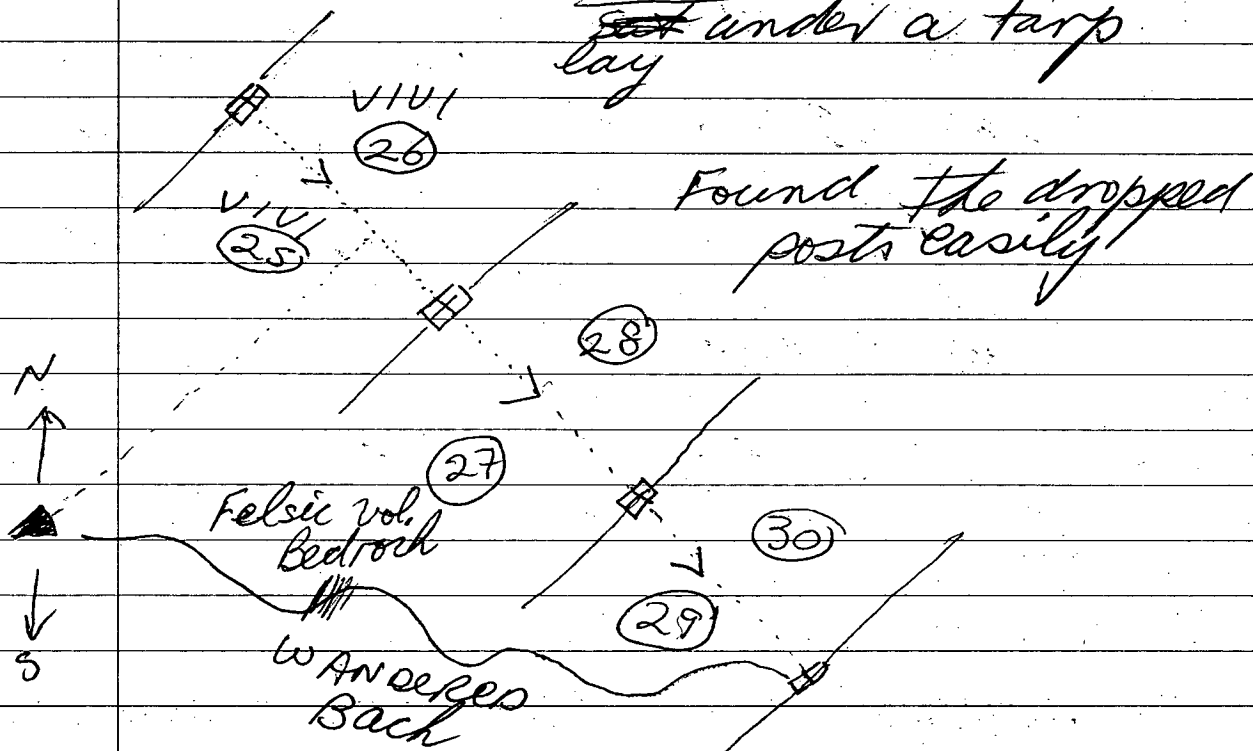 under a tarp
lay
VIVI
26
Found the dropped
posts easily
VIVI
25
28
N
27
Felsic vol.
Bedrock
30
29
S
WANDERED
Back